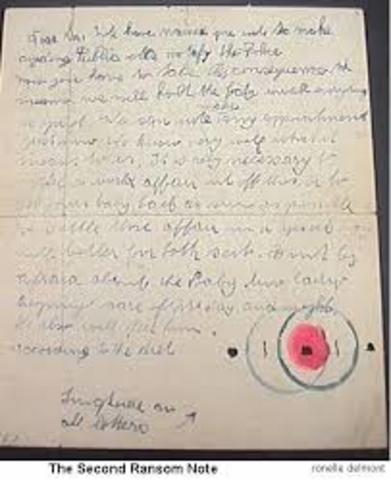 Dear Sir. We have you not to make
anyding Public also notify the Police
now you have to take the consequences
means we will hold the baby until everyding
is quiet. We can note any appointment
just now. We know very well what it
means to us. It is rely necessary to
make a world affair out off this, or to
get your baby back as soon as possible
to settle those affair in a quick
will better for both seits. Dont by
afraid about the Baby two lady
keeping care of its day and night.
will him
according to the diet.
Singnature on
all letters
The Second Ransom Note
ronelle delmont